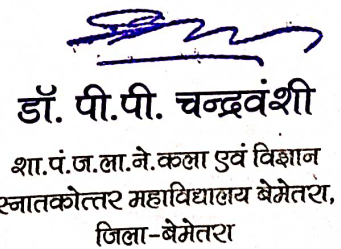 डॉ. पी.पी. चन्द्रवंशी
शा.पं.ज.ला.ने.कला एवं विज्ञान
स्नातकोत्तर महाविद्यालय बेमेतरा,
जिला-बेमेतरा